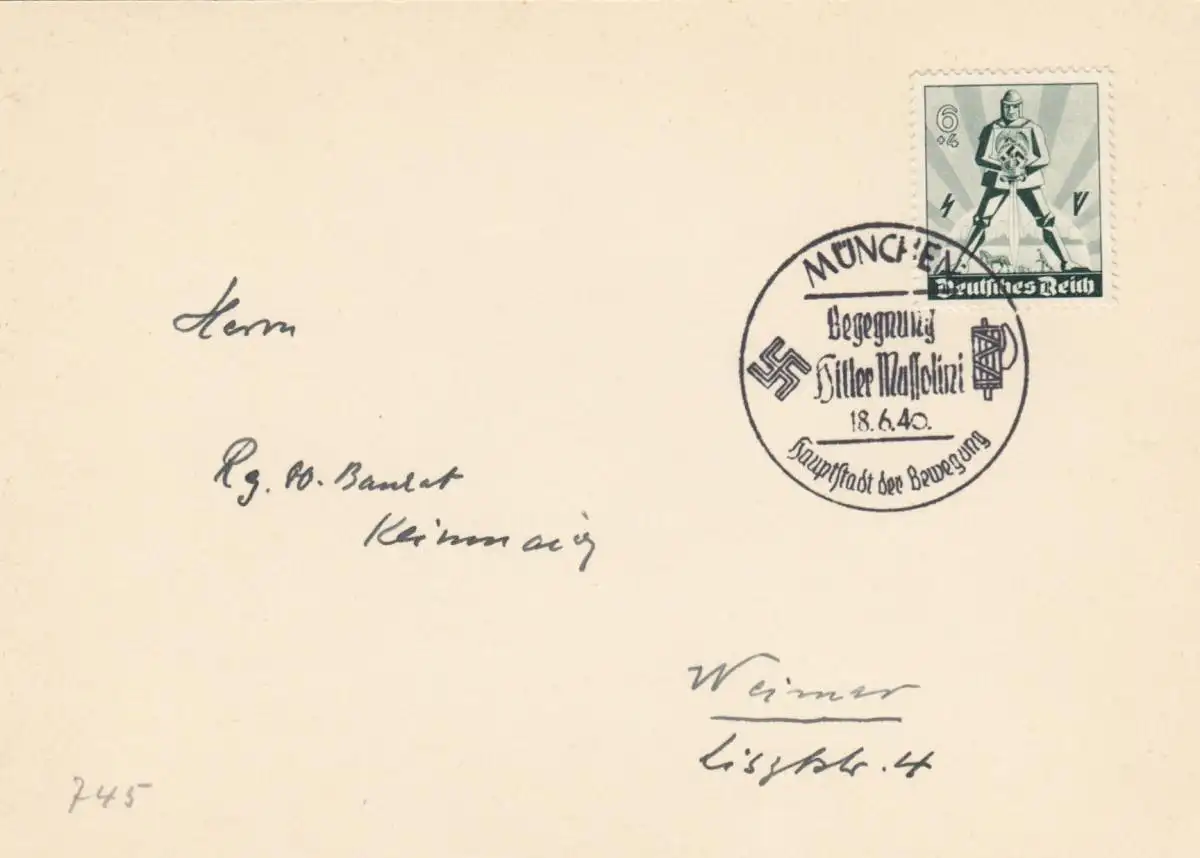 6
+4
Deutsches Reich
MÜNCHEN
Begegnung
Hitler Mussolini
18.6.40.
Hauptstadt der Bewegung
Herrn
Rg. Baurat
Weimar
Lisztstr. 4
745